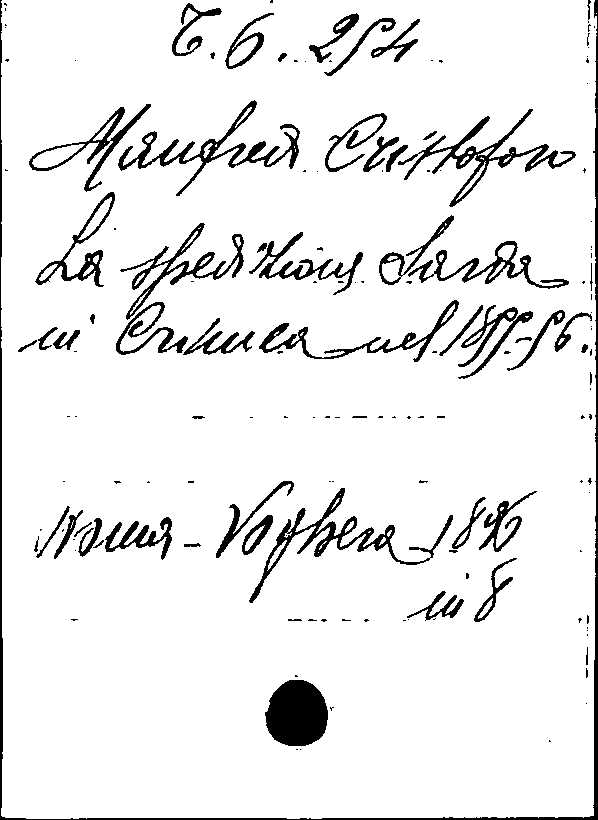 T. 6. 254
Manfredi Cristoforo
La spedizione Sarda
in Crimea nel 1855-56.
Roma - Voghera 1896
in 8